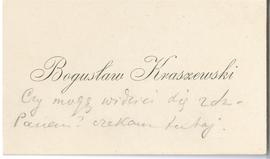 Bogusław Kraszewski
Czy mogę widzieć się z
Panem? czekam tutaj.